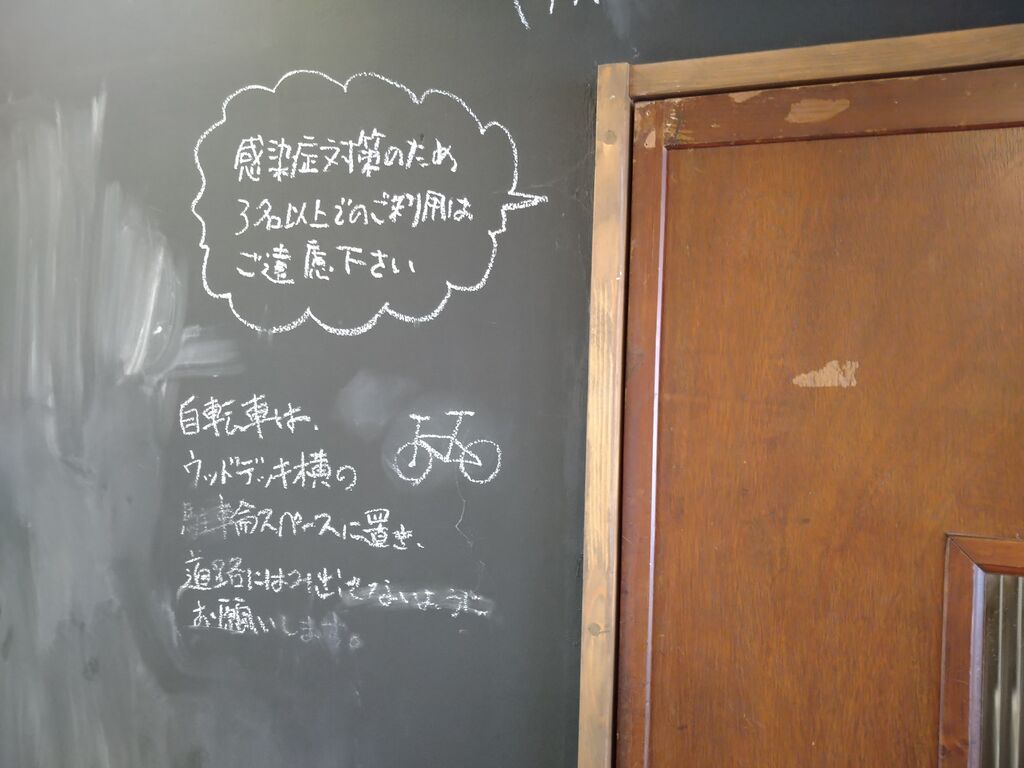 感染症対策のため
3名以上でのご利用は
ご遠慮下さい
自転車は、
ウッドデッキ横の
駐輪スペースに置き、
道路にはみ出さないように
お願いします。